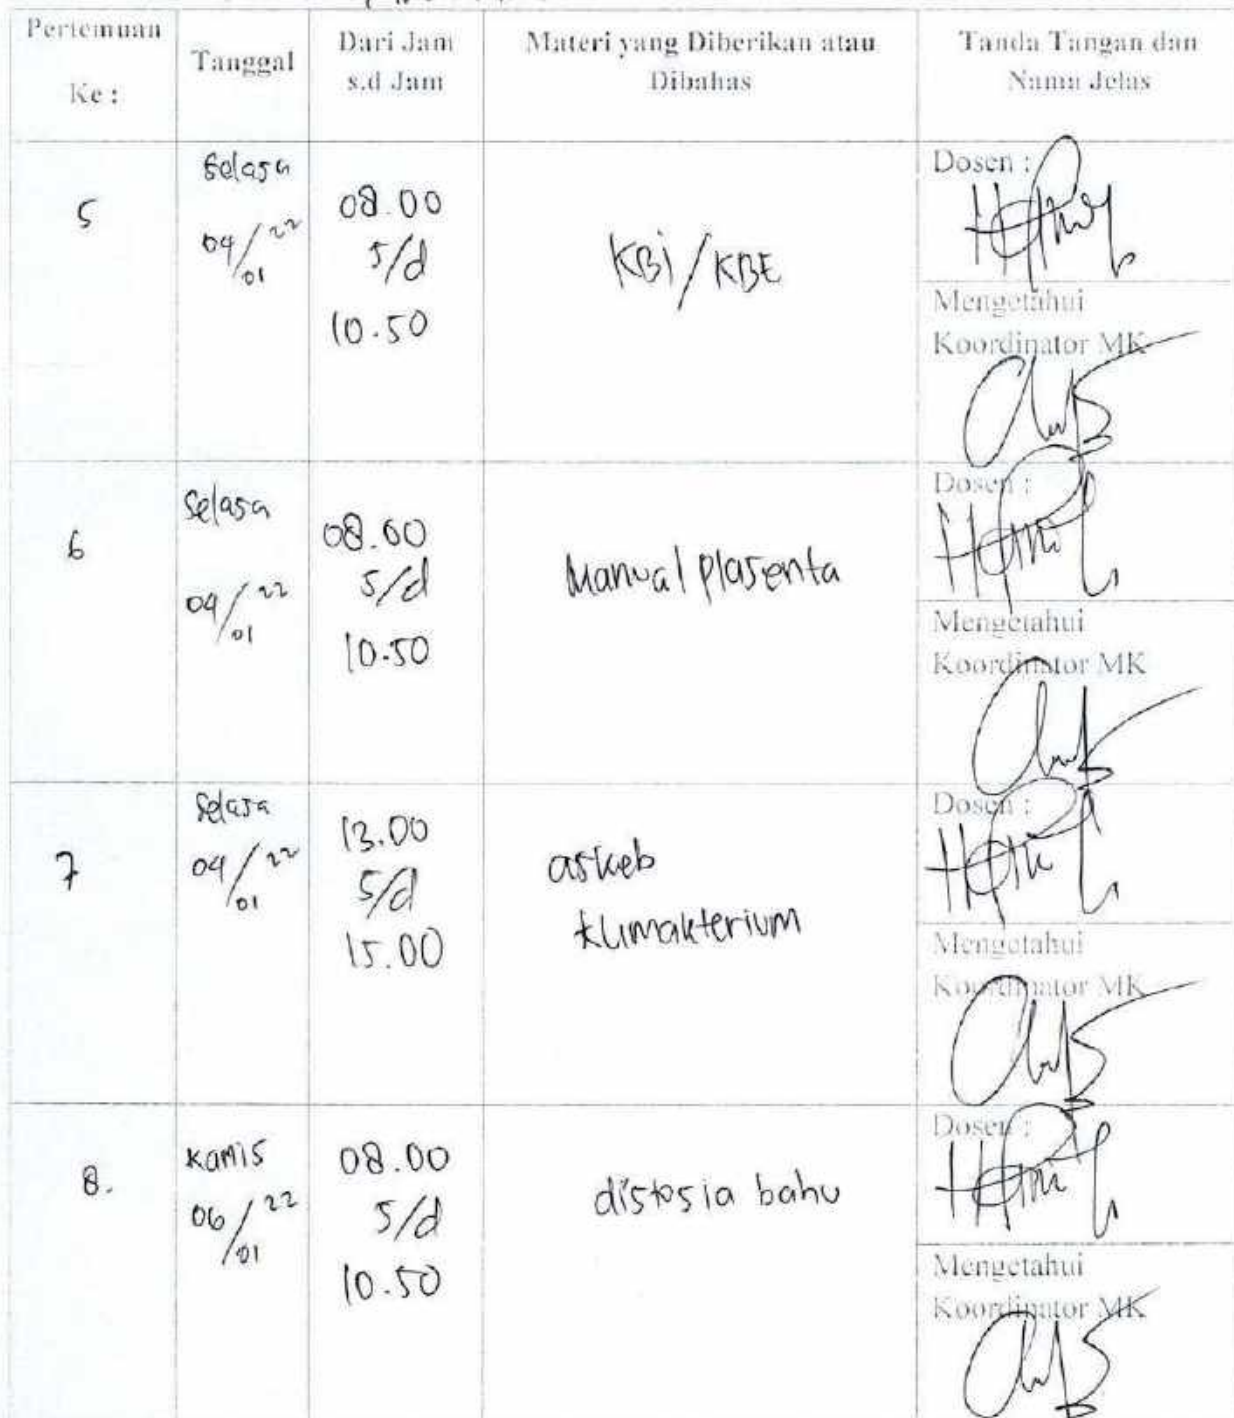 Pertemuan
Ke :
Tanggal
Dari Jam
s.d Jam
Materi yang Diberikan atau
Dibahas
Tanda Tangan dan
Nama Jelas
5
Selasa
04/01 22
08.00
s/d
10.50
KBi/KBE
Dosen :
Mengetahui
Koordinator MK
6
Selasa
04/01 22
08.00
s/d
10.50
Manual plasenta
Dosen :
Mengetahui
Koordinator MK
7
Selasa
04/01 22
13.00
s/d
15.00
askeb
klimakterium
Dosen :
Mengetahui
Koordinator MK
8.
Kamis
06/01 22
08.00
s/d
10.50
distosia bahu
Dosen :
Mengetahui
Koordinator MK